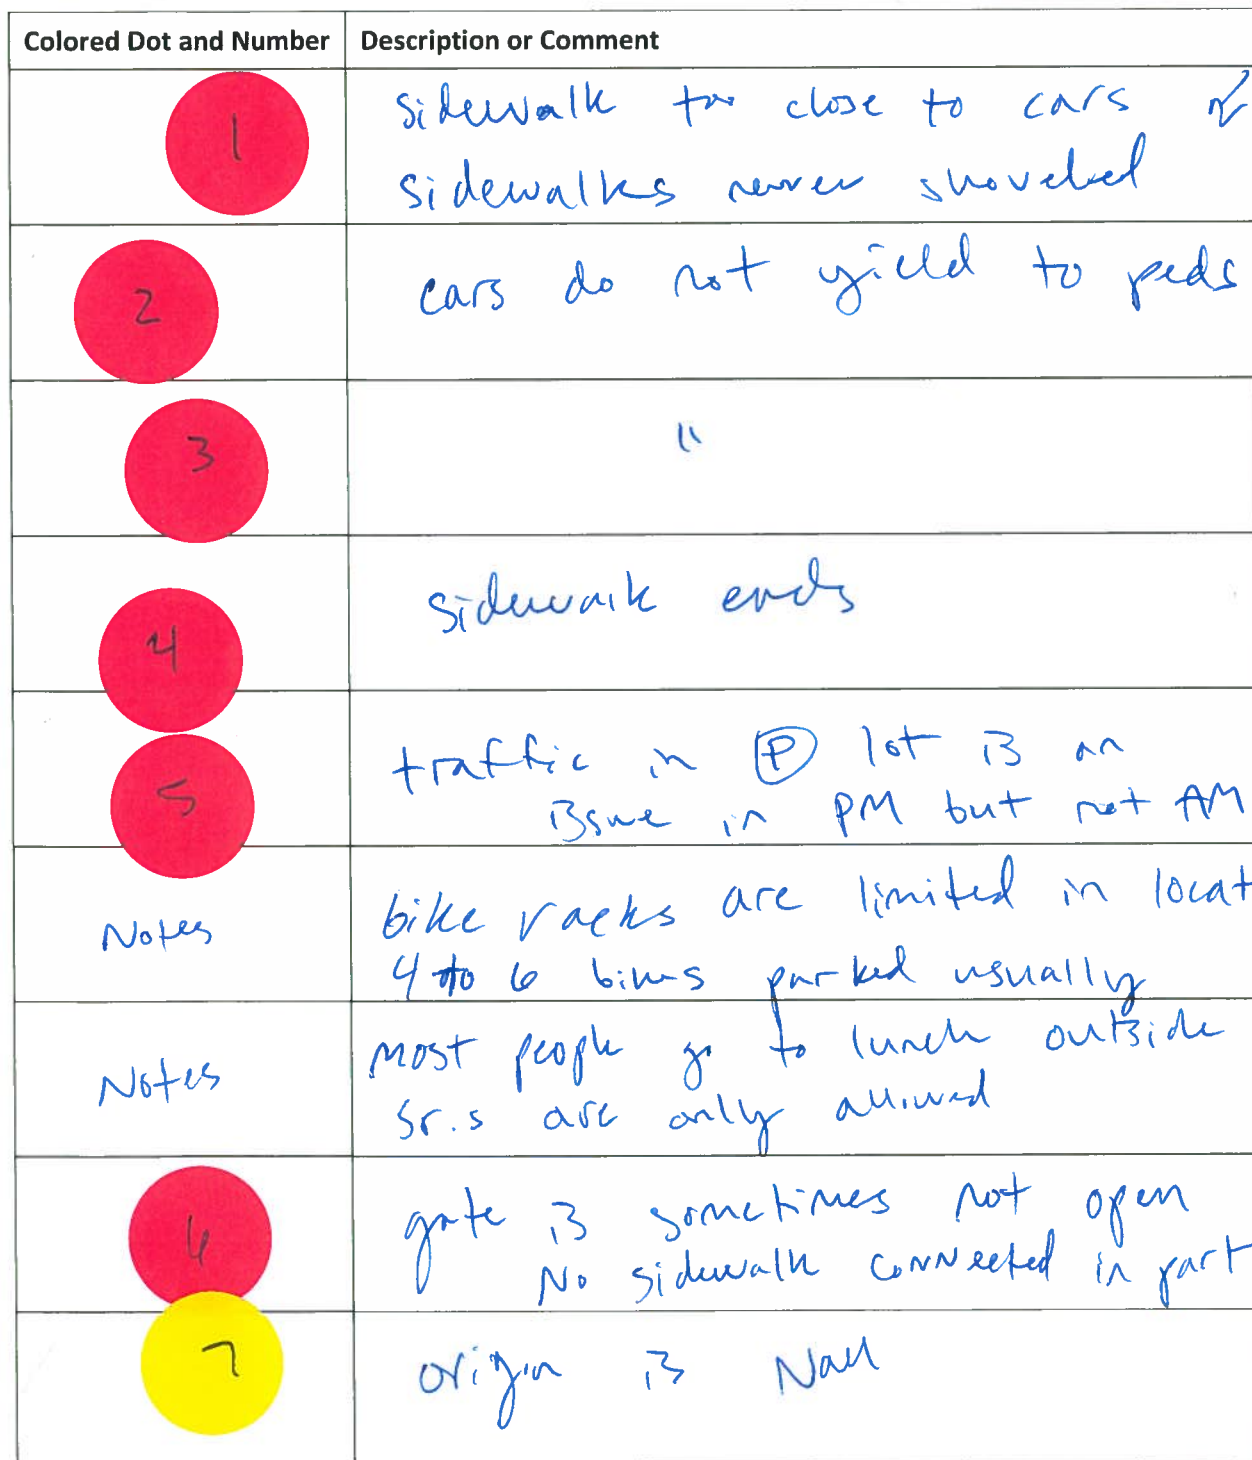 Colored Dot and Number Description or Comment
1 sidewalk too close to cars &
sidewalks never shoveled
2 cars do not yield to peds
3 "
4 sidewalk ends
5 traffic in P lot is an
issue in PM but not AM
Notes bike racks are limited in locat
4 to 6 bikes parked usually
Notes most people go to lunch outside
Sr.s are only allowed
6 gate is sometimes not open
No sidewalk connected in part
7 origin is Nall